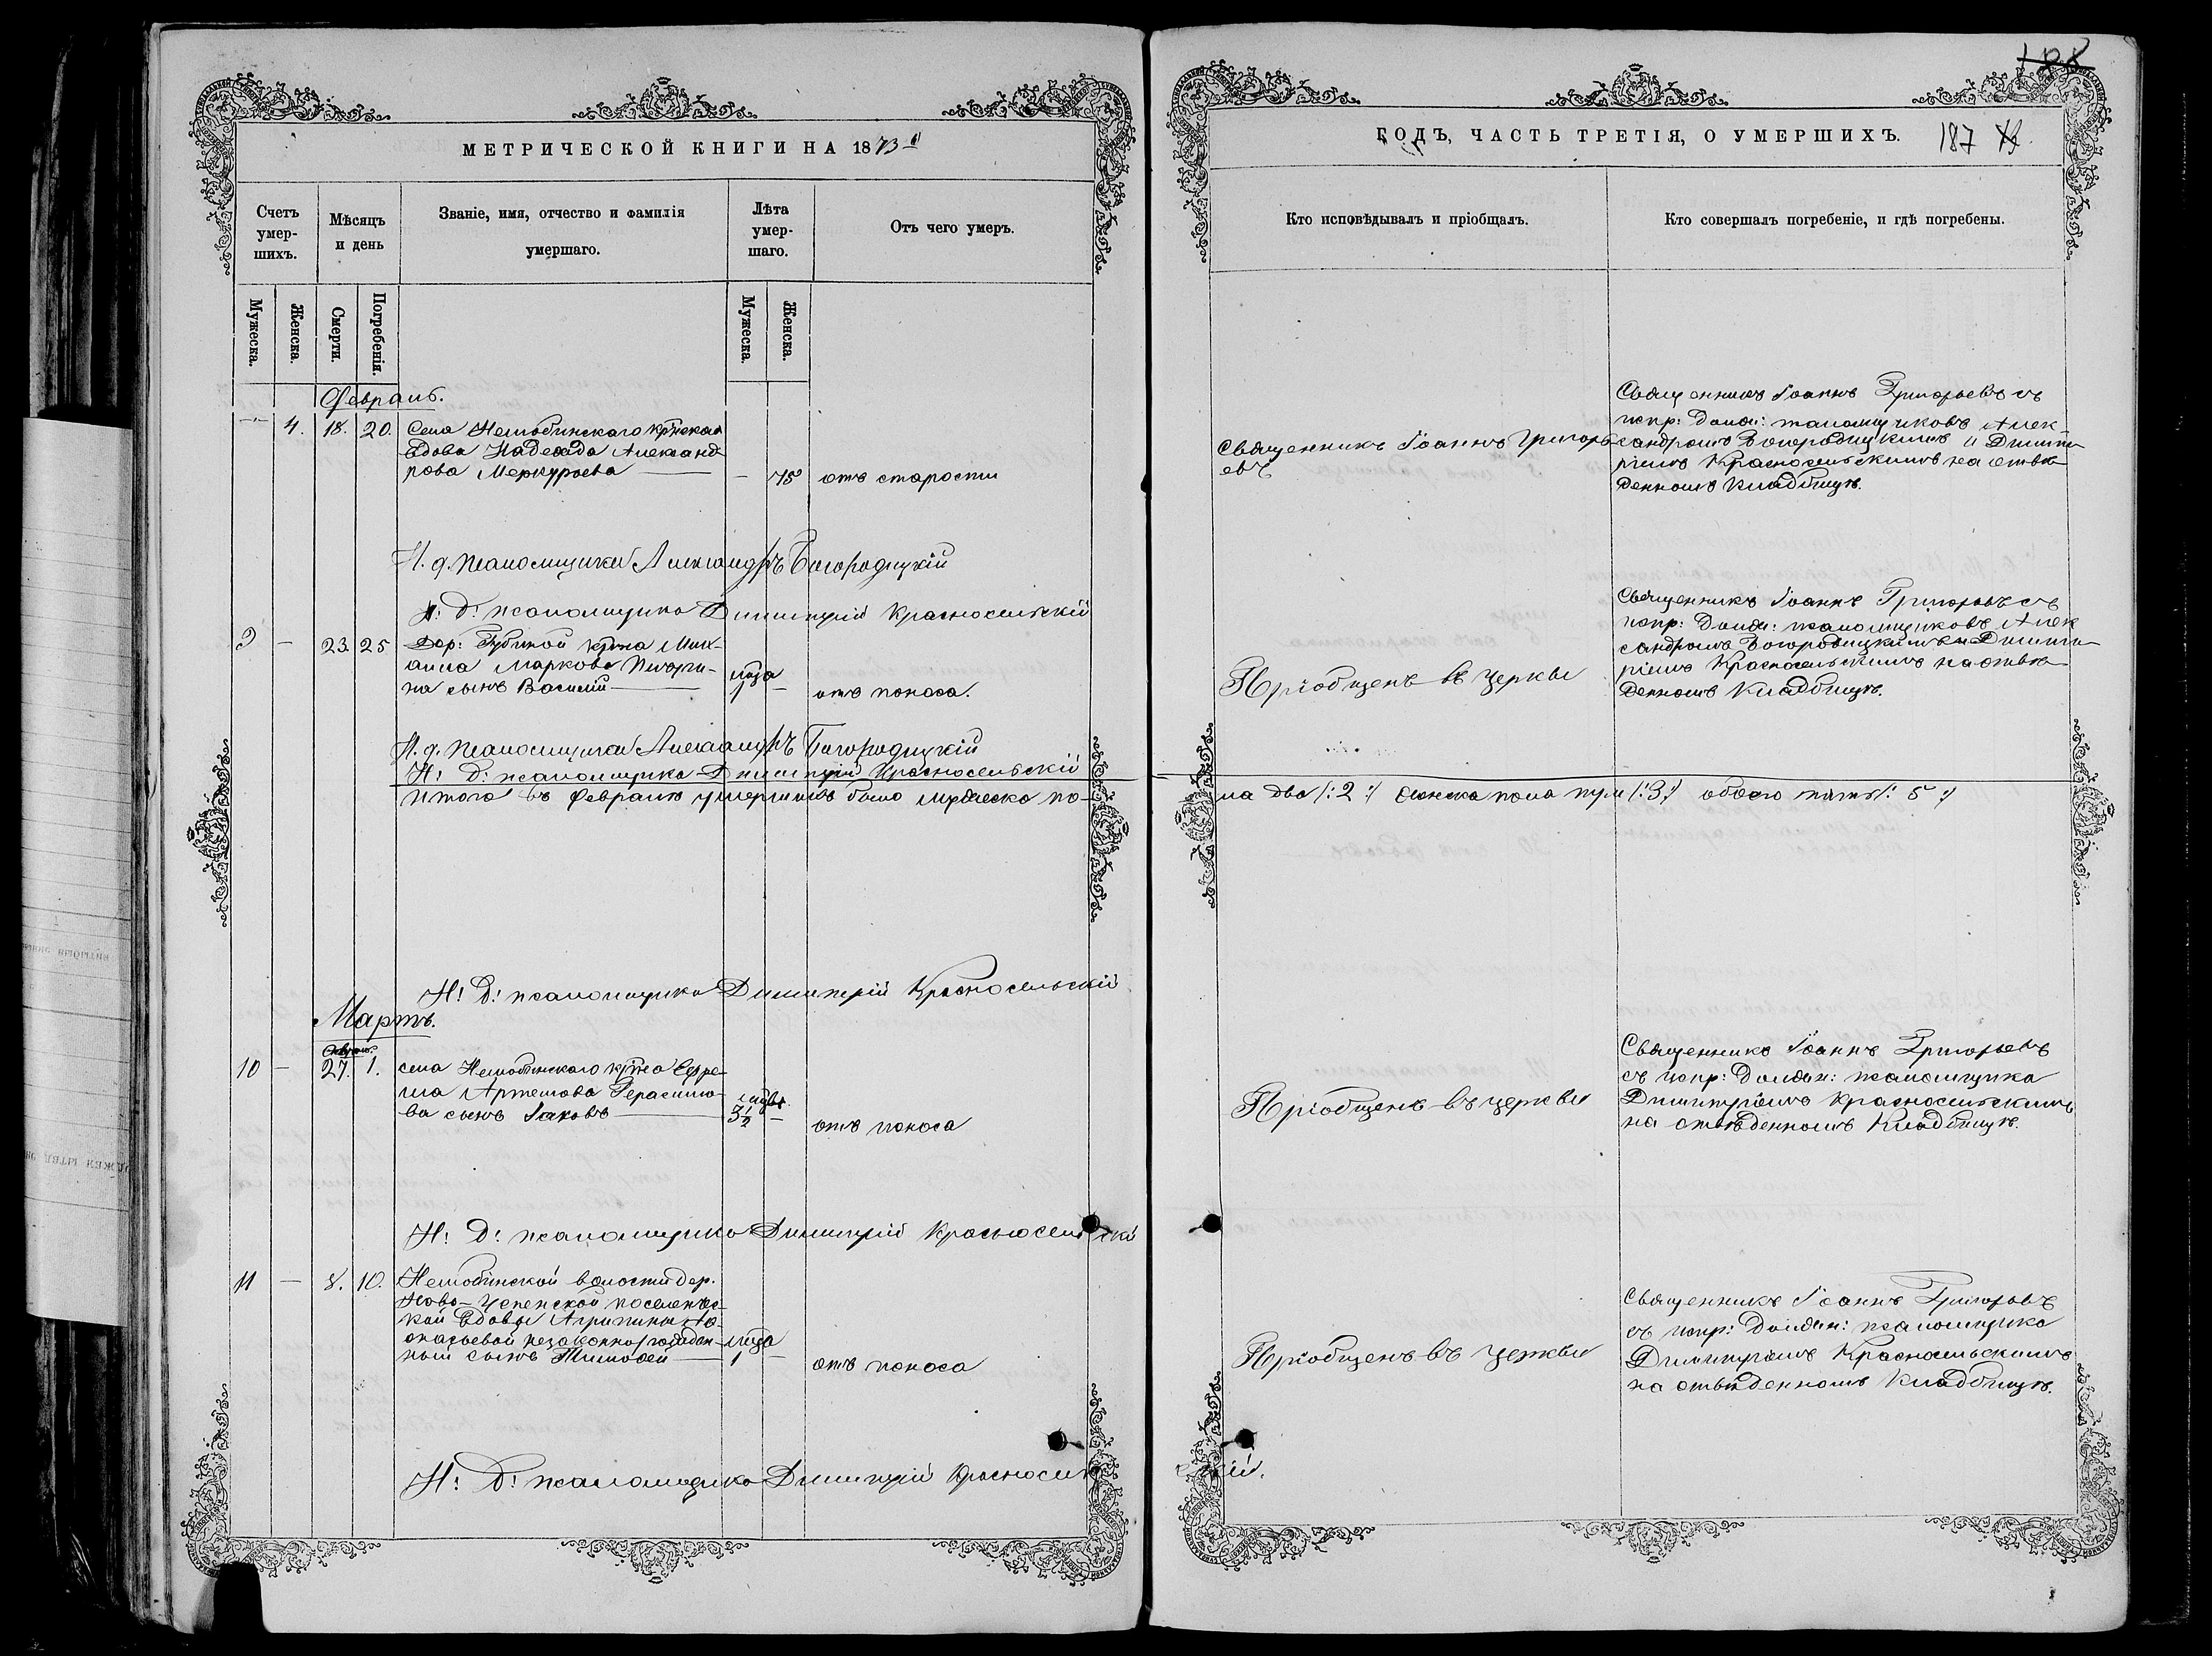 МЕТРИЧЕСКОЙ КНИГИ НА 1873 й
Счетъ умер-шихъ.
Мѣсяцъ и день
Званіе, имя, отчество и фамилія умершаго.
Лѣта умер-шаго.
Отъ чего умеръ.
Мужеска.
Женска.
Смерти.
Погребенія.
Мужеска.
Женска.
Февраль.
4. 18. 20. Села Немобинскаго
вдова Надежда Александ-
рова Меркурьева — 75 отъ старости
И. д. псаломщика Александръ Богородицкій
И: д: псаломщика Димитрій Красносельскій
9 — 23. 25 Дер:
Маркова
на сынъ Василій — года 1 — отъ поноса.
И. д. псаломщика Александръ Богородицкій
И: д: псаломщика Димитрій Красносельскій
Итого въ Февралѣ умершихъ было мужеска по-
И: д: псаломщика Димитрій Красносельскій
Мартъ.
10 — 27. 1. села Немобинскаго Ефре-
ма Артемова Герасимо-
ва сынъ Іаковъ — 3½ — отъ поноса
И: д: псаломщика Димитрій Красносельскій
11 — 8. 10. Немобинской волости дер.
Ново-Успенской
вдовы Агрипины
незаконнорожден-
ный сынъ Тимофей — года 1 — отъ поноса
И: д: псаломщика Димитрій Красносельскій.
ГОДЪ, ЧАСТЬ ТРЕТІЯ, О УМЕРШИХЪ. 187
Кто исповѣдывалъ и пріобщалъ.
Кто совершалъ погребеніе, и гдѣ погребены.
Священникъ Іоаннъ Григорь-
евъ
Священникъ Іоаннъ Григорьевъ съ
испр: должн: псаломщиковъ Алек-
сандромъ Богородицкимъ и Димит-
ріемъ Красносельскимъ на отве-
денномъ кладбищѣ.
Пріобщенъ въ церкви
Священникъ Іоаннъ Григорьевъ съ
испр: должн: псаломщиковъ Алек
сандромъ Богородицкимъ и Димит-
ріемъ Красносельскимъ на отве-
денномъ кладбищѣ.
ла два /: 2 :/ женска пола три /: 3 :/ обоего пять /: 5 :/
Пріобщенъ въ церкви
Священникъ Іоаннъ Григорьевъ
съ испр: должн: псаломщика
Димитріемъ Красносельскимъ
на отведенномъ кладбищѣ.
Пріобщенъ въ церкви
Священникъ Іоаннъ Григорьевъ
съ испр: должн: псаломщика
Димитріемъ Красносельскимъ
на отведенномъ кладбищѣ.